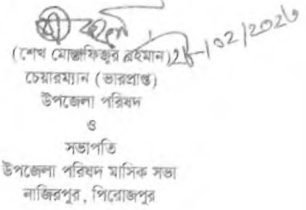 (শেখ মোস্তাফিজুর রহমান)
চেয়ারম্যান (ভারপ্রাপ্ত)
উপজেলা পরিষদ
ও
সভাপতি
উপজেলা পরিষদ মাসিক সভা
নাজিরপুর, পিরোজপুর